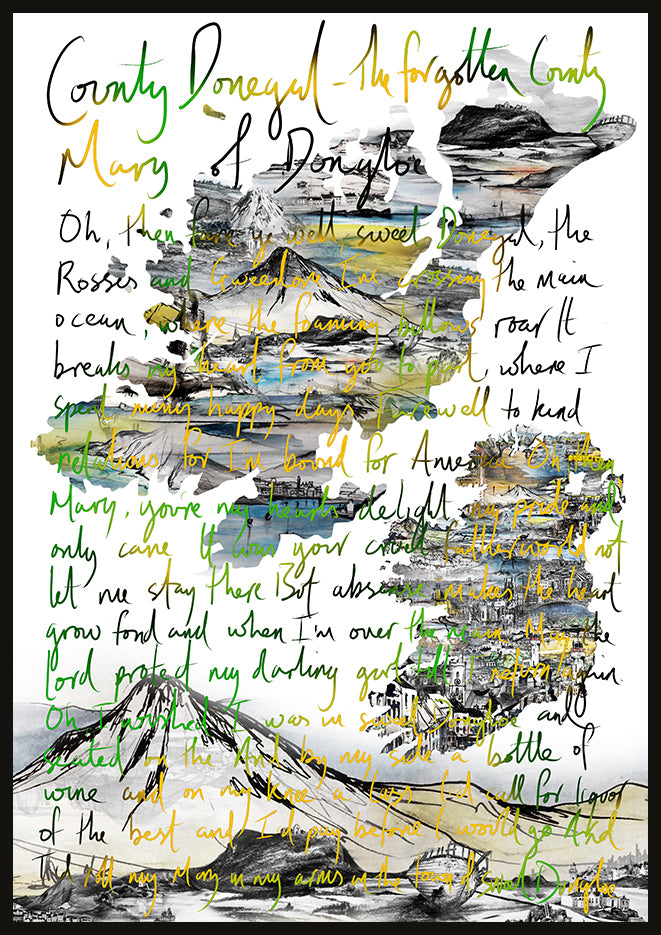 County Donegal - The forgotten County
Mary of Dongloe
Oh, then fare ye well, sweet Donegal, the
Rosses and Gweedore I'm crossing the main
ocean, where the foaming billows roar It
breaks my heart from you to part, where I
spent many happy days Farewell to kind
relations, for I'm bound for America Oh then
Mary, you're my heart's delight my pride and
only care It was your cruel father would not
let me stay there But absense makes the heart
grow fond and when I'm over the main May the
Lord protect my darling girl till I return again
Oh I wished I was in sweet Dongloe and
seated on the And by my side a bottle of
wine and on my knee a lass I'd call for liquor
of the best and I'd pay before I would go And
I'd roll my Mary in my arms in the town of sweet Dongloe